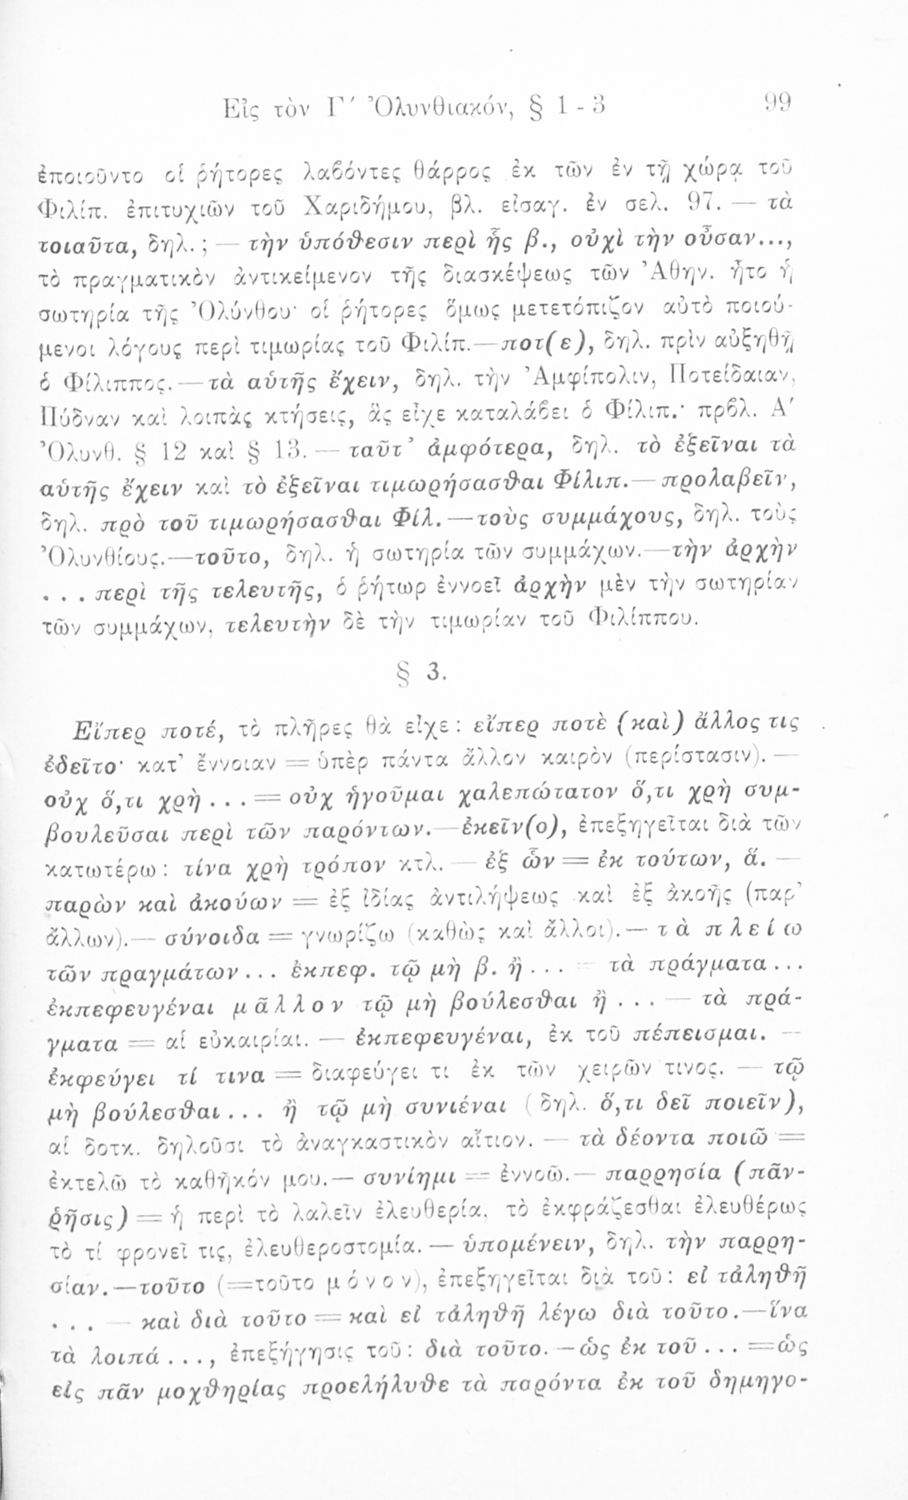 Εἰς τὸν Γ΄ Ὀλυνθιακόν, § 1 - 3 99
ἐποιοῦντο οἱ ῥήτορες λαβόντες θάρρος ἐκ τῶν ἐν τῇ χώρᾳ τοῦ
Φιλίπ. ἐπιτυχιῶν τοῦ Χαριδήμου, βλ. εἰσαγ. ἐν σελ. 97. — τὰ
τοιαῦτα, δηλ. ; — τὴν ὑπόθεσιν περὶ ἧς β., οὐχὶ τὴν οὖσαν...,
τὸ πραγματικὸν ἀντικείμενον τῆς διασκέψεως τῶν Ἀθην. ἦτο ἡ
σωτηρία τῆς Ὀλύνθου· οἱ ῥήτορες ὅμως μετετόπιζον αὐτὸ ποιού-
μενοι λόγους περὶ τιμωρίας τοῦ Φιλίπ.— ποτ(ε), δηλ. πρὶν αὐξηθῇ
ὁ Φίλιππος. — τὰ αὑτῆς ἔχειν, δηλ. τὴν Ἀμφίπολιν, Ποτείδαιαν,
Πύδναν καὶ λοιπὰς κτήσεις, ἃς εἶχε καταλάβει ὁ Φίλιπ.· πρβλ. Α΄
Ὀλυνθ. § 12 καὶ § 13. — ταῦτ᾽ ἀμφότερα, δηλ. τὸ ἐξεῖναι τὰ
αὑτῆς ἔχειν καὶ τὸ ἐξεῖναι τιμωρήσασθαι Φίλιπ.— προλαβεῖν,
δηλ. πρὸ τοῦ τιμωρήσασθαι Φίλ. — τοὺς συμμάχους, δηλ. τοὺς
Ὀλυνθίους.— τοῦτο, δηλ. ἡ σωτηρία τῶν συμμάχων. — τὴν ἀρχὴν
. . . περὶ τῆς τελευτῆς, ὁ ῥήτωρ ἐννοεῖ ἀρχὴν μὲν τὴν σωτηρίαν
τῶν συμμάχων, τελευτὴν δὲ τὴν τιμωρίαν τοῦ Φιλίππου.
§ 3.
Εἴπερ ποτέ, τὸ πλῆρες θὰ εἶχε : εἴπερ ποτὲ (καὶ) ἄλλος τις
ἐδεῖτο· κατ᾽ ἔννοιαν = ὑπὲρ πάντα ἄλλον καιρὸν (περίστασιν). —
οὐχ ὅ,τι χρὴ . . . = οὐχ ἡγοῦμαι χαλεπώτατον ὅ,τι χρὴ συμ-
βουλεῦσαι περὶ τῶν παρόντων. — ἐκεῖν(ο), ἐπεξηγεῖται διὰ τῶν
κατωτέρω : τίνα χρὴ τρόπον κτλ. — ἐξ ὧν = ἐκ τούτων, ἅ. —
παρὼν καὶ ἀκούων = ἐξ ἰδίας ἀντιλήψεως καὶ ἐξ ἀκοῆς (παρ᾽
ἄλλων). — σύνοιδα = γνωρίζω (καθὼς καὶ ἄλλοι). — τὰ πλείω
τῶν πραγμάτων . . . ἐκπεφ. τῷ μὴ β. ἢ . . . — τὰ πράγματα . . .
ἐκπεφευγέναι μᾶλλον τῷ μὴ βούλεσθαι ἢ . . . — τὰ πρά-
γματα = αἱ εὐκαιρίαι. — ἐκπεφευγέναι, ἐκ τοῦ πέπεισμαι. —
ἐκφεύγει τί τινα = διαφεύγει τι ἐκ τῶν χειρῶν τινος. — τῷ
μὴ βούλεσθαι . . . ἢ τῷ μὴ συνιέναι (δηλ. ὅ,τι δεῖ ποιεῖν),
αἱ δοτκ. δηλοῦσι τὸ ἀναγκαστικὸν αἴτιον. — τὰ δέοντα ποιῶ =
ἐκτελῶ τὸ καθῆκόν μου.— συνίημι = ἐννοῶ.— παρρησία (πᾶν-
ῥῆσις) = ἡ περὶ τὸ λαλεῖν ἐλευθερία, τὸ ἐκφράζεσθαι ἐλευθέρως
τὸ τί φρονεῖ τις, ἐλευθεροστομία. — ὑπομένειν, δηλ. τὴν παρρη-
σίαν. — τοῦτο (=τοῦτο μόνον), ἐπεξηγεῖται διὰ τοῦ : εἰ τἀληθῆ
. . . — καὶ διὰ τοῦτο = καὶ εἰ τἀληθῆ λέγω διὰ τοῦτο.—ἵνα
τὰ λοιπά . . ., ἐπεξήγησις τοῦ : διὰ τοῦτο. — ὡς ἐκ τοῦ . . . =ὡς
εἰς πᾶν μοχθηρίας προελήλυθε τὰ παρόντα ἐκ τοῦ δημηγο-